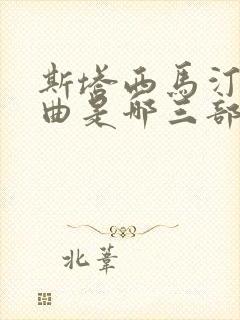 斯塔西馬汀
曲是哪三部
北葦